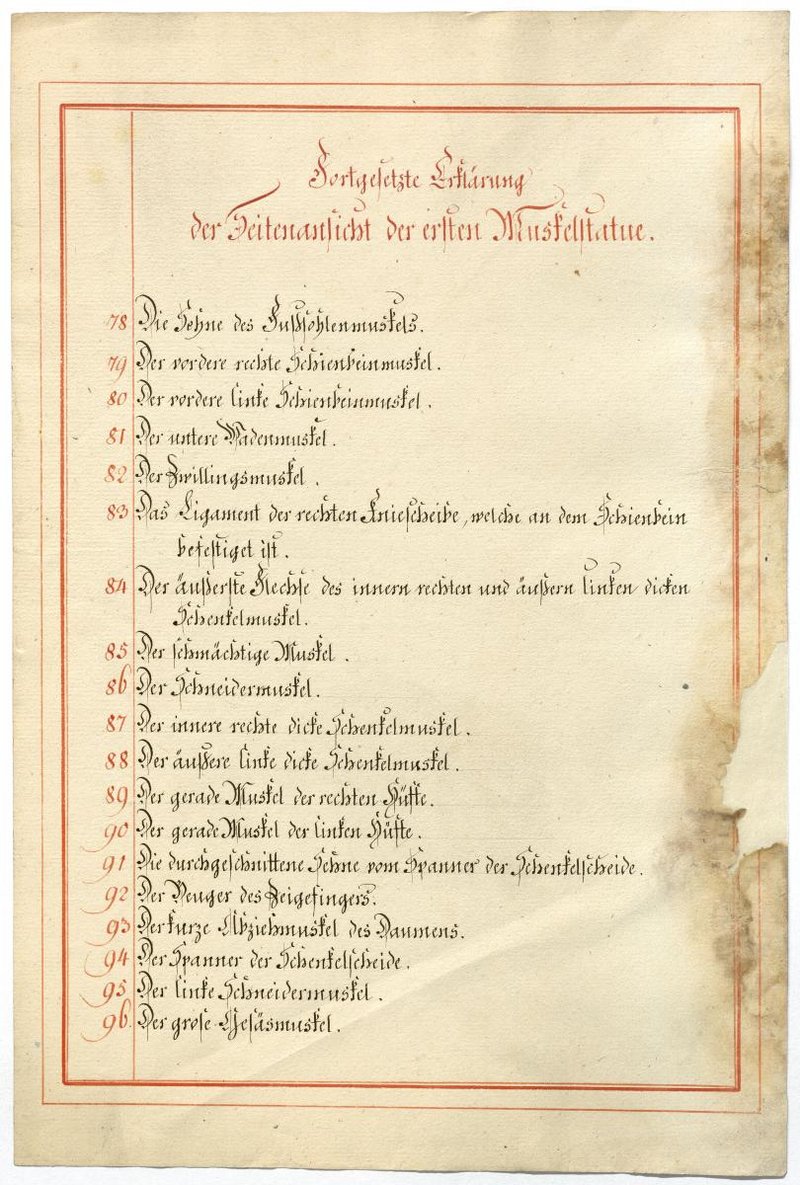 Fortgesetzte Erklärung
der Seitenansicht der ersten Muskelstatue.
78 Die Sehne des Fußsohlenmuskels.
79 Der vordere rechte Schienbeinmuskel.
80 Der vordere linke Schienbeinmuskel.
81 Der untere Wadenmuskel.
82 Der Zwillingsmuskel.
83 Das Ligament der rechten Kniescheibe, welche an dem Schienbein
befestiget ist.
84 Der äußerste Flechse des innern rechten und äußern linken dicken
Schenkelmuskel.
85 Der schmächtige Muskel.
86 Der Schneidermuskel.
87 Der innere rechte dicke Schenkelmuskel.
88 Der äußere linke dicke Schenkelmuskel.
89 Der gerade Muskel der rechten Hüfte.
90 Der gerade Muskel der linken Hüfte.
91 Die durchgeschnittene Sehne vom Spanner der Schenkelscheide.
92 Der Beuger des Zeigefingers.
93 Der kurze Abziehmuskel des Daumens.
94 Der Spanner der Schenkelscheide.
95 Der linke Schneidermuskel.
96 Der grose Gesäsmuskel.